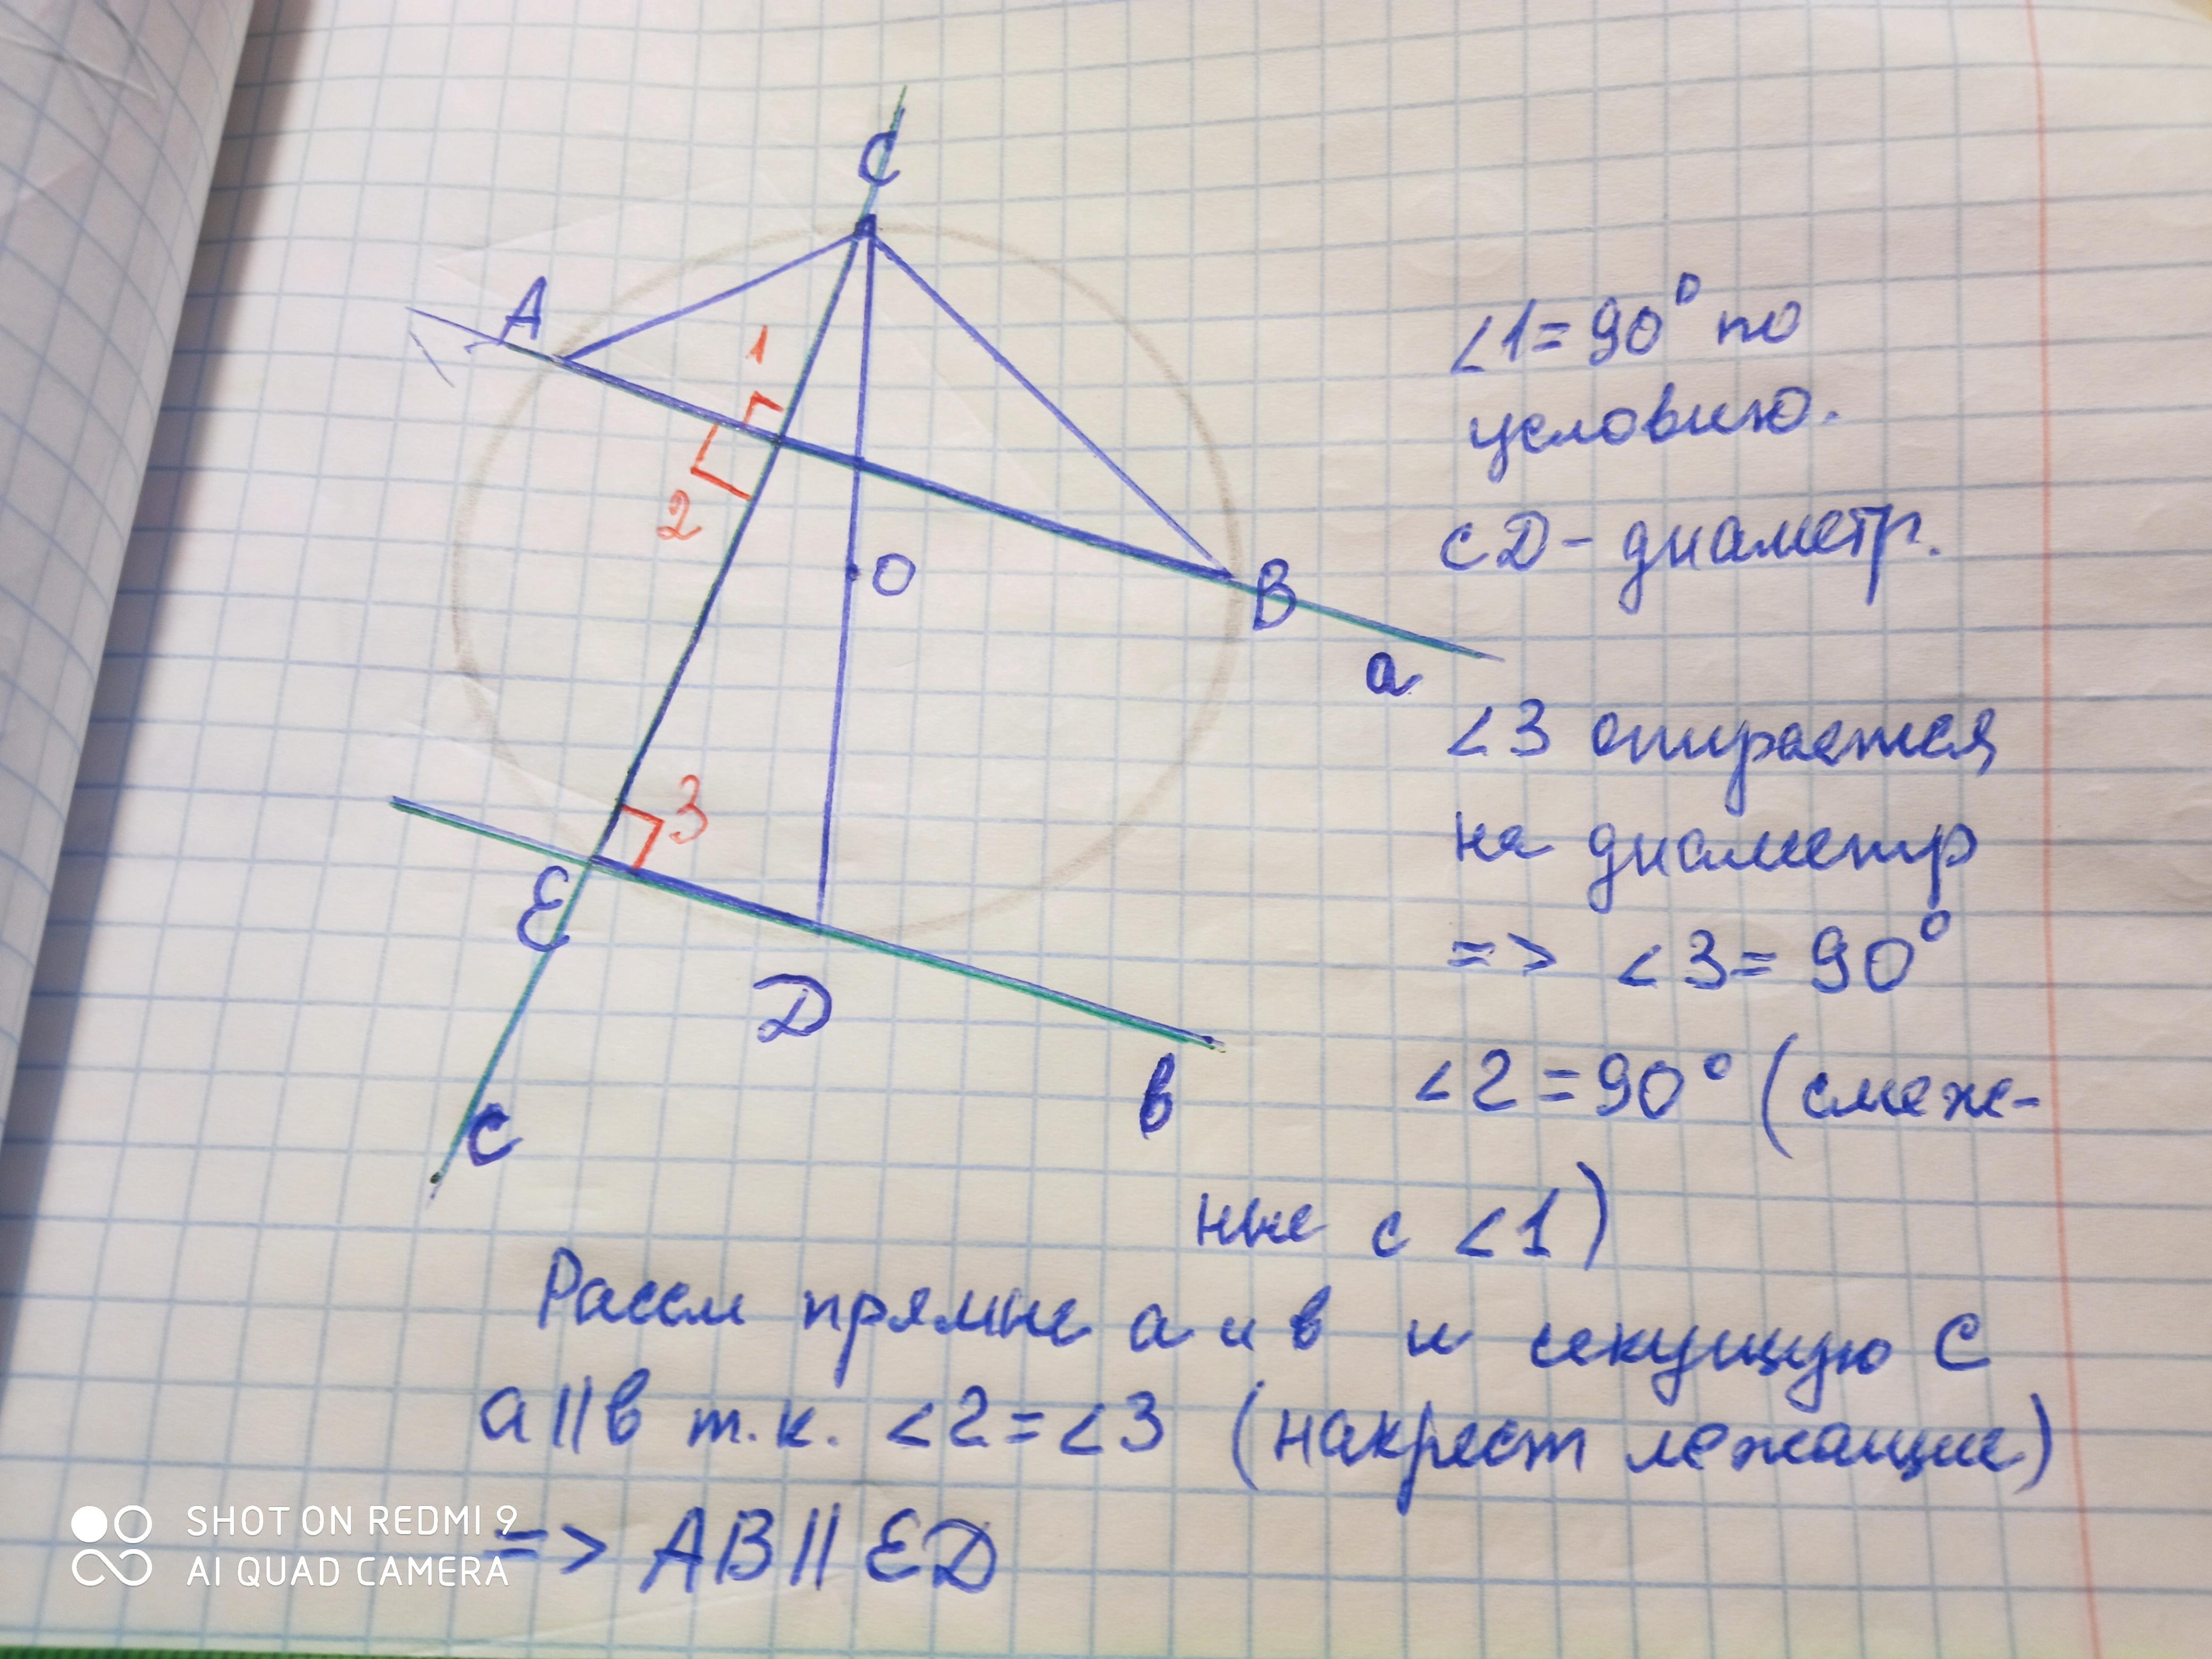 C
A
1
2
O
B
a
3
E
D
в
c
∠1=90° по
условию.
CD - диаметр.
∠3 опирается
на диаметр
=> ∠3=90°
∠2=90° (смеж-
ные с ∠1)
Рассм прямые a и в и секущую C
a||в т.к. ∠2=∠3 (накрест лежащие)
=> AB||ED
SHOT ON REDMI 9
AI QUAD CAMERA